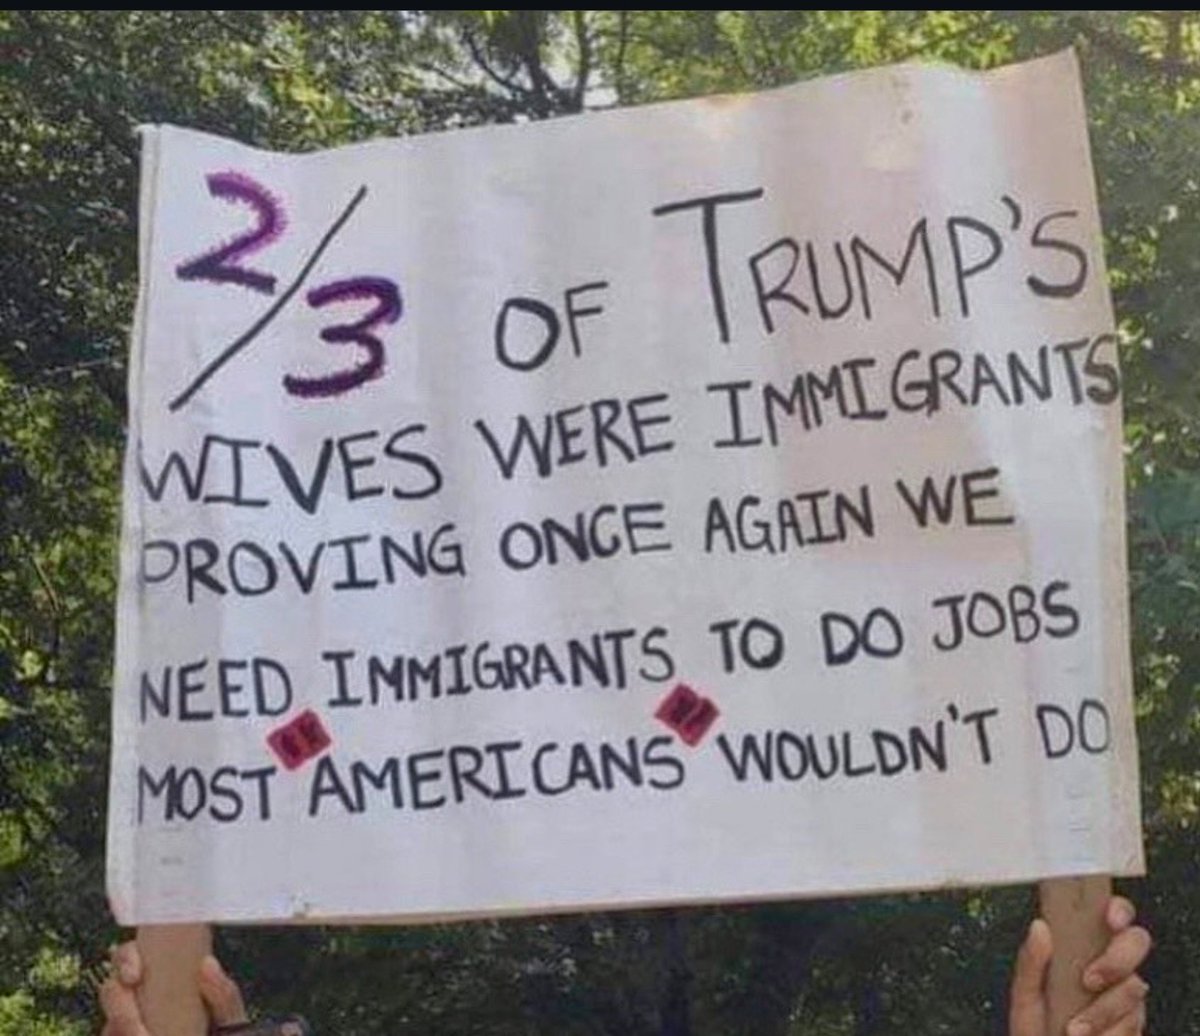 2/3 OF TRUMP'S
WIVES WERE IMMIGRANTS
PROVING ONCE AGAIN WE
NEED IMMIGRANTS TO DO JOBS
MOST AMERICANS WOULDN'T DO